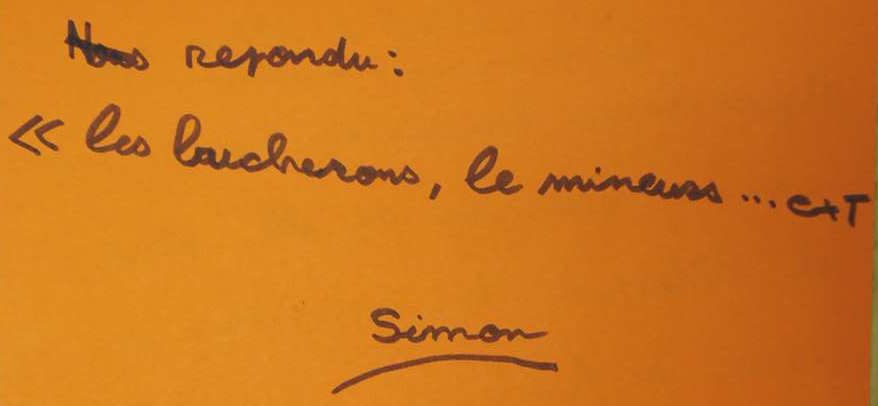 Nous repondu:
« les bucherons, le mineurs ... ext
Simon